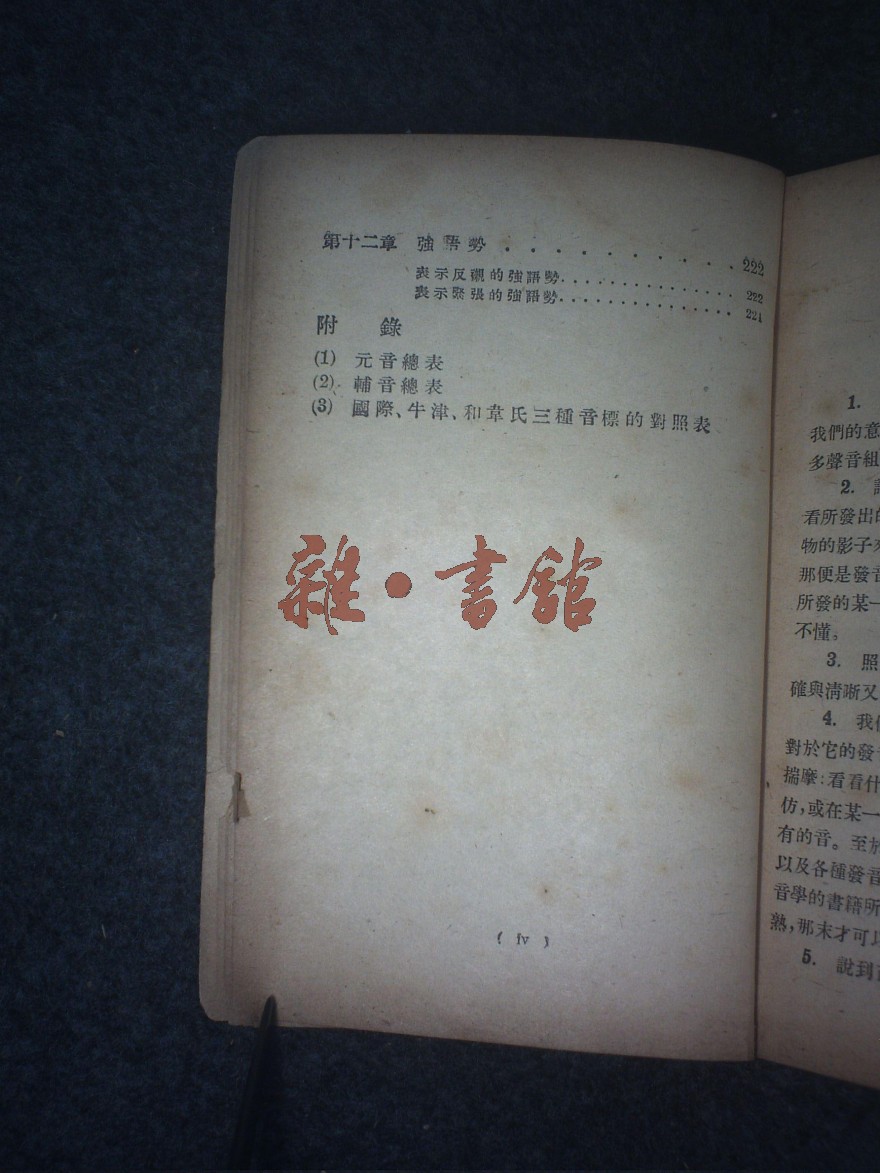 第十二章 強語勢 . . . . . . . . . . 222
表示反襯的強語勢. . . . . . . . . . . . . . . 222
表示緊張的強語勢. . . . . . . . . . . . . . . 224
附 錄
(1) 元音總表
(2) 輔音總表
(3) 國際、牛津、和韋氏三種音標的對照表
雜·書館
( iv )
1.
我們的意
多聲音組
2.
看所發出的
物的影子
那便是發音
所發的某一
不懂。
3. 照
確與清晰又
4. 我們
對於它的發音
揣摩:看看什
仿,或在某一
有的音。至於
以及各種發音
音學的書籍所
熟,那末才可以
5. 說到